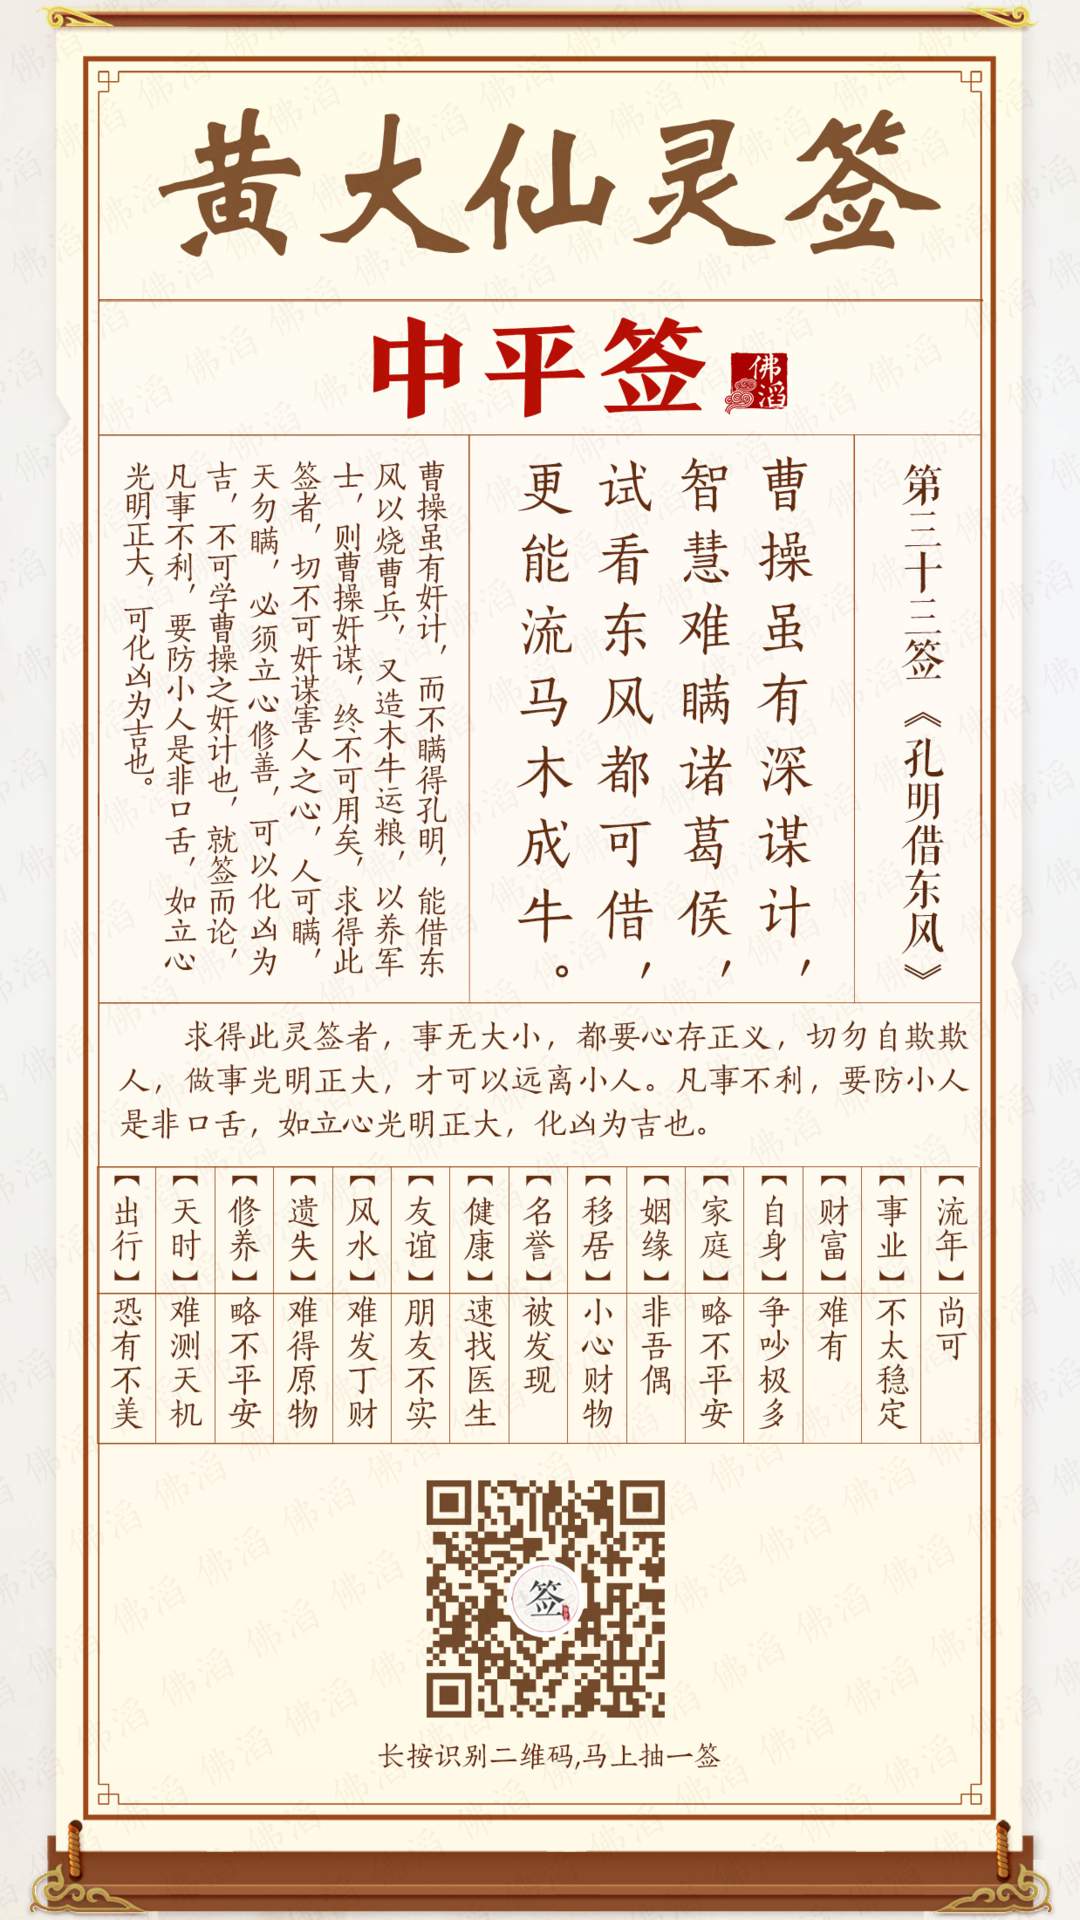 黄大仙灵签
中平签
佛滔
第三十三签《孔明借东风》
曹操虽有深谋计，
智慧难瞒诸葛侯，
试看东风都可借，
更能流马木成牛。
曹操虽有奸计，而不瞒得孔明，能借东
风以烧曹兵，又造木牛运粮，以养军
士，则曹操奸谋，终不可用矣，求得此
签者，切不可奸谋害人之心，人可瞒，
天勿瞒，必须立心修善，可以化凶为
吉，不可学曹操之奸计也，就签而论，
凡事不利，要防小人是非口舌，如立心
光明正大，可化凶为吉也。
求得此灵签者，事无大小，都要心存正义，切勿自欺欺
人，做事光明正大，才可以远离小人。凡事不利，要防小人
是非口舌，如立心光明正大，化凶为吉也。
【流年】尚可
【事业】不太稳定
【财富】难有
【自身】争吵极多
【家庭】略不平安
【姻缘】非吾偶
【移居】小心财物
【名誉】被发现
【健康】速找医生
【友谊】朋友不实
【风水】难发丁财
【遗失】难得原物
【修养】略不平安
【天时】难测天机
【出行】恐有不美
签
长按识别二维码,马上抽一签